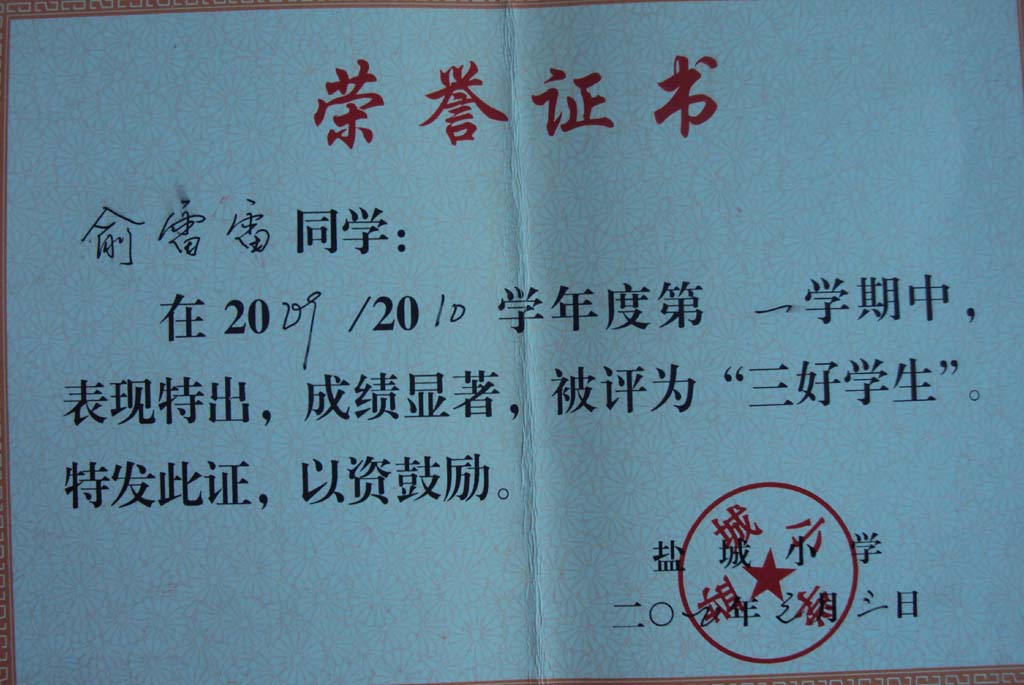 荣誉证书
俞雷雷同学：
在2009/2010学年度第一学期中，
表现特出，成绩显著，被评为“三好学生”。
特发此证，以资鼓励。
盐城小学
二〇年三月三日
盐城小学